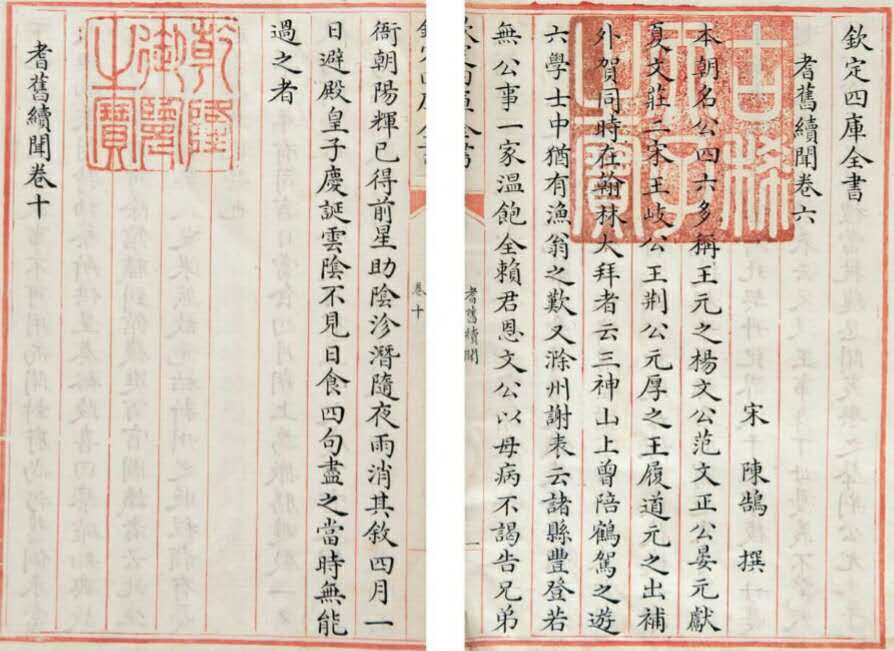 欽定四庫全書
古稀天子之寶
耆舊續聞卷六
宋 陳鵠 撰
本朝名公四六多稱王元之楊文公范文正公晏元獻
夏文莊二宋王岐公王荆公元厚之王履道元之出補
外賀同時在翰林大拜者云三神山上曾陪鶴駕之遊
六學士中猶有漁翁之歎又滁州謝表云諸縣豐登若
無公事一家溫飽全賴君恩文公以母病不謁告兄弟
耆舊續聞
一
卷十
衙朝陽輝已得前星助陰沴潛隨夜雨消其敘四月一
日避殿皇子慶誕雲陰不見日食四句盡之當時無能
過之者
乾隆御覽之寶
耆舊續聞卷十